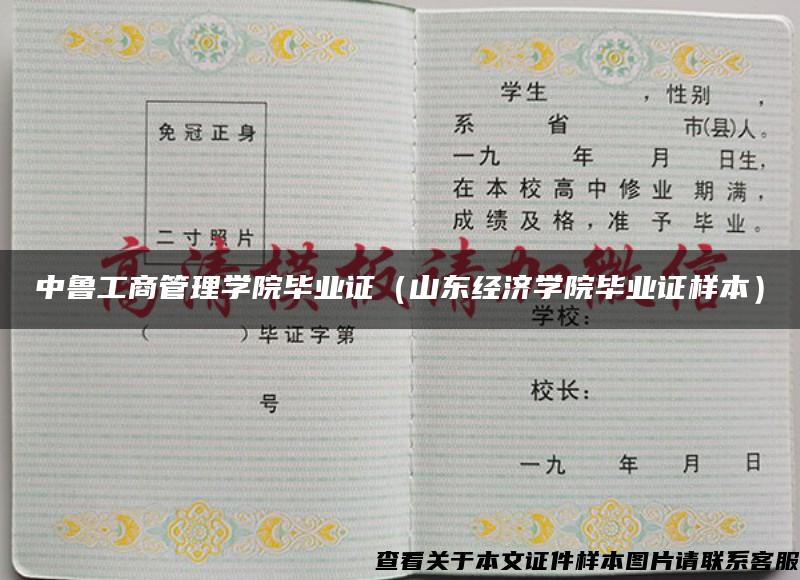 免冠正身
二寸照片
(　　)毕证字第
号
学生　　，性别　，
系　　省　　市(县)人。
一九　　年　　月　　日生，
在本校高中修业期满，
成绩及格，准予毕业。
高清模板请加微信
中鲁工商管理学院毕业证（山东经济学院毕业证样本）
学校：
校长：
一九　　年　　月　　日
查看关于本文证件样本图片请联系客服